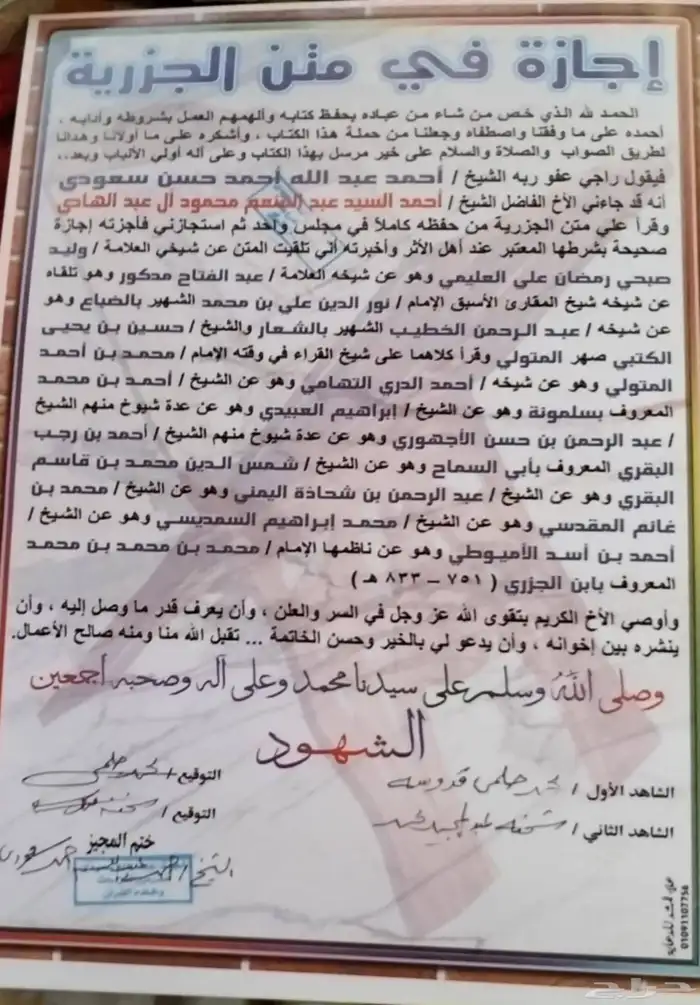 إجازة في متن الجزرية
الحمد لله الذي خص من شاء من عباده بحفظ كتابه وألهمهم العمل بشروطه وآدابه ،
أحمده على ما وفقنا واصطفاه وجعلنا من حملة هذا الكتاب ، وأشكره على ما أولانا وهدانا
لطريق الصواب والصلاة والسلام على خير مرسل بهذا الكتاب وعلى آله أولي الألباب وبعد..
فيقول راجي عفو ربه الشيخ / أحمد عبد الله أحمد حسن سعودي
أنه قد جاءني الأخ الفاضل الشيخ / أحمد السيد عبد المنعم محمود آل عبد الهادي
وقرأ علي متن الجزرية من حفظه كاملاً في مجلس واحد ثم استجازني فأجزته إجازة
صحيحة بشرطها المعتبر عند أهل الأثر وأخبرته أني تلقيت المتن عن شيخي العلامة / وليد
صبحي رمضان علي العليمي وهو عن شيخه العلامة / عبد الفتاح مدكور وهو تلقاه
عن شيخه شيخ المقارئ الأسبق الإمام / نور الدين علي بن محمد الشهير بالضباع وهو
عن شيخه / عبد الرحمن الخطيب الشهير بالشعار والشيخ / حسين بن يحيى
الكتبي صهر المتولي وقرأ كلاهما على شيخ القراء في وقته الإمام / محمد بن أحمد
المتولي وهو عن شيخه / أحمد الدري التهامي وهو عن الشيخ / أحمد بن محمد
المعروف بسلمونة وهو عن الشيخ / إبراهيم العبيدي وهو عن عدة شيوخ منهم الشيخ
/ عبد الرحمن بن حسن الأجهوري وهو عن عدة شيوخ منهم الشيخ / أحمد بن رجب
البقري المعروف بأبي السماح وهو عن الشيخ / شمس الدين محمد بن قاسم
البقري وهو عن الشيخ / عبد الرحمن بن شحاذة اليمني وهو عن الشيخ / محمد بن
غانم المقدسي وهو عن الشيخ / محمد إبراهيم السمديسي وهو عن الشيخ /
أحمد بن أسد الأميوطي وهو عن ناظمها الإمام / محمد بن محمد بن محمد
المعروف بابن الجزري ( ٧٥١ – ٨٣٣ هـ )
وأوصي الأخ الكريم بتقوى الله عز وجل في السر والعلن ، وأن يعرف قدر ما وصل إليه ، وأن
ينشره بين إخوانه ، وأن يدعو لي بالخير وحسن الخاتمة ... تقبل الله منا ومنه صالح الأعمال.
وصلى الله وسلم على سيدنا محمد وعلى آله وصحبه أجمعين
الشهود
الشاهد الأول / محمد حلمي قدوسه
التوقيع / محمد حلمي
الشاهد الثاني /
التوقيع /
ختم المجيز
الشيخ / أحمد
01091107756
حراج